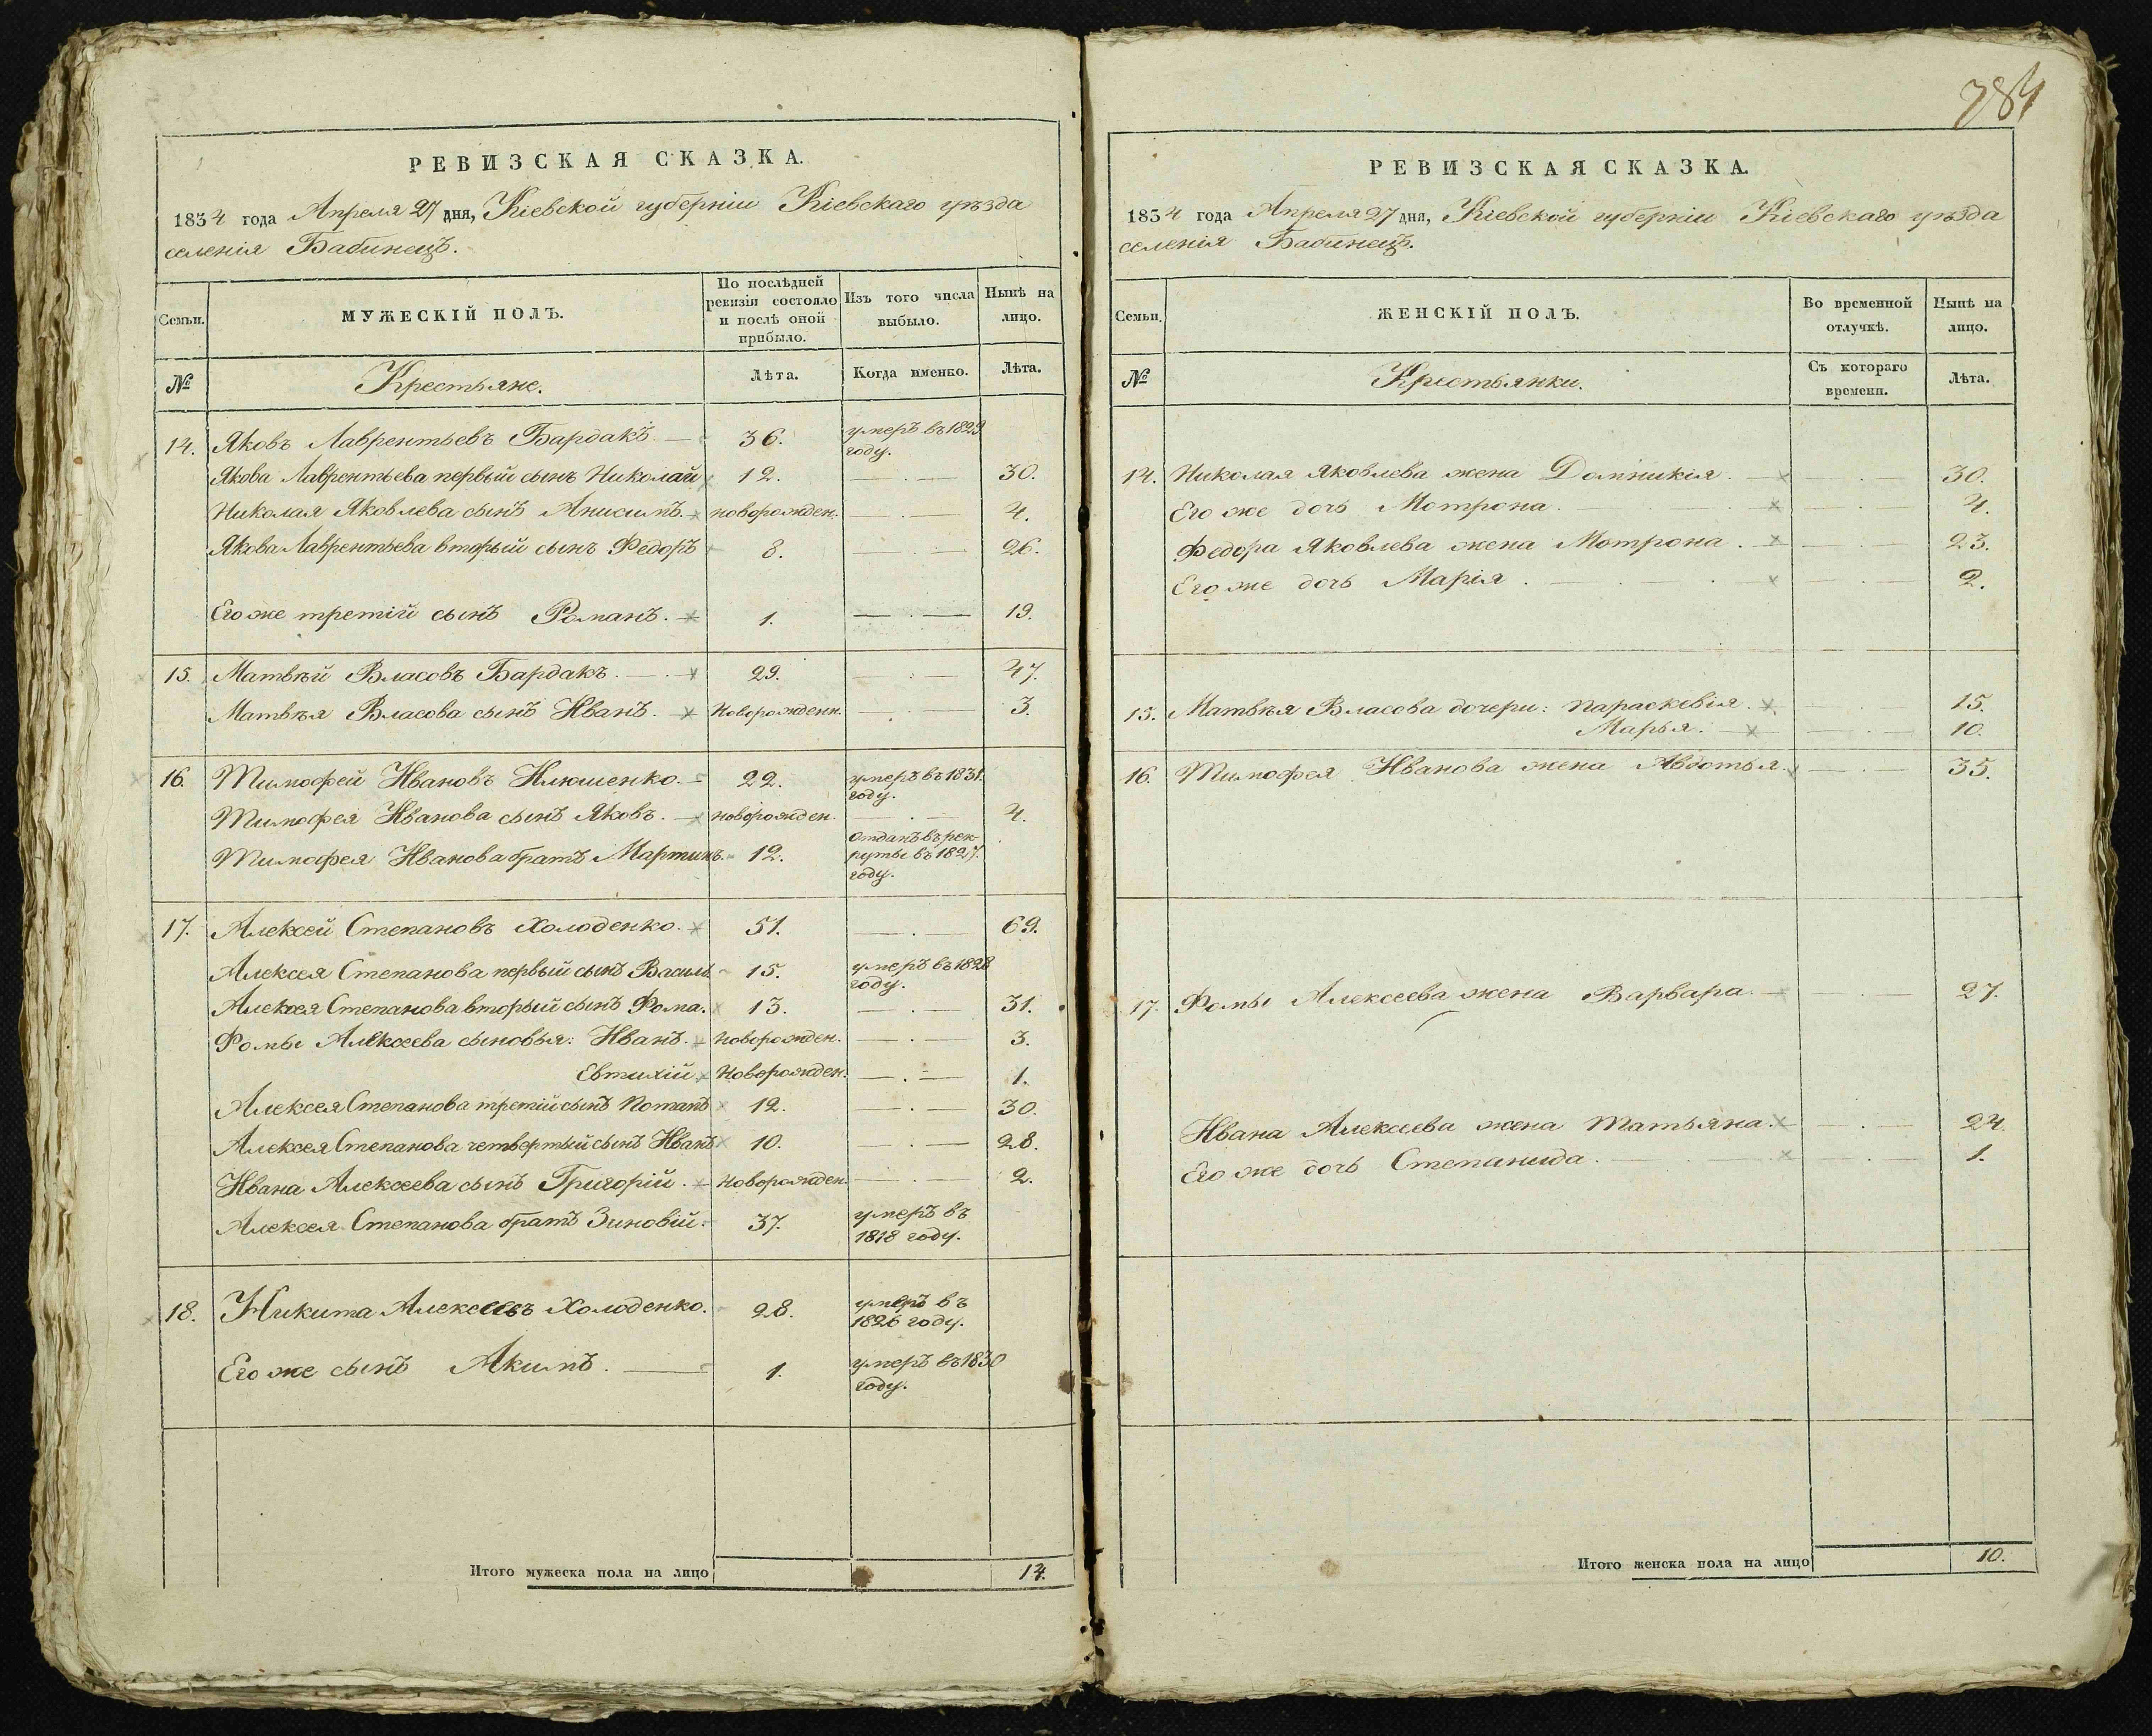 784
РЕВИЗСКАЯ СКАЗКА.
1834 года Апреля 27 дня, Кіевской губерніи Кіевскаго уѣзда
селенія Бабинецъ.
Семьи.
МУЖЕСКІЙ ПОЛЪ.
По послѣдней
ревизіи состояло
и послѣ оной
прибыло.
Изъ того числа
выбыло.
Нынѣ на
лицо.
№
Крестьяне.
Лѣта.
Когда именно.
Лѣта.
14. Яковъ Лаврентьевъ Бардакъ. 36. умеръ въ 1829
году.
Якова Лаврентьева первый сынъ Николай 12. 30.
Николая Яковлева сынъ Анисимъ. новорожден. 4.
Якова Лаврентьева вторый сынъ Федоръ 8. 26.
Его же третій сынъ Романъ. 1. 19.
15. Матвѣй Власовъ Бардакъ. 29. 47.
Матвѣя Власова сынъ Иванъ. Новорожденн. 3.
16. Тимофей Ивановъ Клюшенко. 22. умеръ въ 1831.
году.
Тимофея Иванова сынъ Яковъ. новорожден. 4.
Тимофея Иванова братъ Мартинъ. 12. отданъ въ рек-
руты въ 1827.
году.
17. Алексей Степановъ Холоденко. 51. 69.
Алексея Степанова первый сынъ Василь 15. умеръ въ 1828
году.
Алексея Степанова вторый сынъ Фома. 13. 31.
Фомы Алексеева сыновья: Иванъ. новорожден. 3.
Евтихій Новорожден. 1.
Алексея Степанова третій сынъ Потапъ 12. 30.
Алексея Степанова четвертый сынъ Иванъ 10. 28.
Ивана Алексеева сынъ Григорій. Новорожден. 2.
Алексея Степанова братъ Зиновій. 37. умеръ въ
1818 году.
18. Никита Алексеевъ Холоденко. 28. умеръ въ
1826 году.
Его же сынъ Акимъ. 1. умеръ въ 1830
году.
Итого мужеска пола на лицо 14.
РЕВИЗСКАЯ СКАЗКА.
1834 года Апреля 27 дня, Кіевской губерніи Кіевскаго уѣзда
селенія Бабинецъ.
Семьи.
ЖЕНСКІЙ ПОЛЪ.
Во временной
отлучкѣ.
Нынѣ на
лицо.
№
Крестьянки.
Съ котораго
времени.
Лѣта.
14. Николая Яковлева жена Домникія. 30.
Его же дочь Мотрона. 4.
Федора Яковлева жена Мотрона. 23.
Его же дочь Марія. 2.
15. Матвѣя Власова дочери: Параскевія. 15.
Марья. 10.
16. Тимофея Иванова жена Авдотья. 35.
17. Фомы Алексеева жена Варвара. 27.
Ивана Алексеева жена Татьяна. 24.
Его же дочь Степанида. 1.
Итого женска пола на лицо 10.